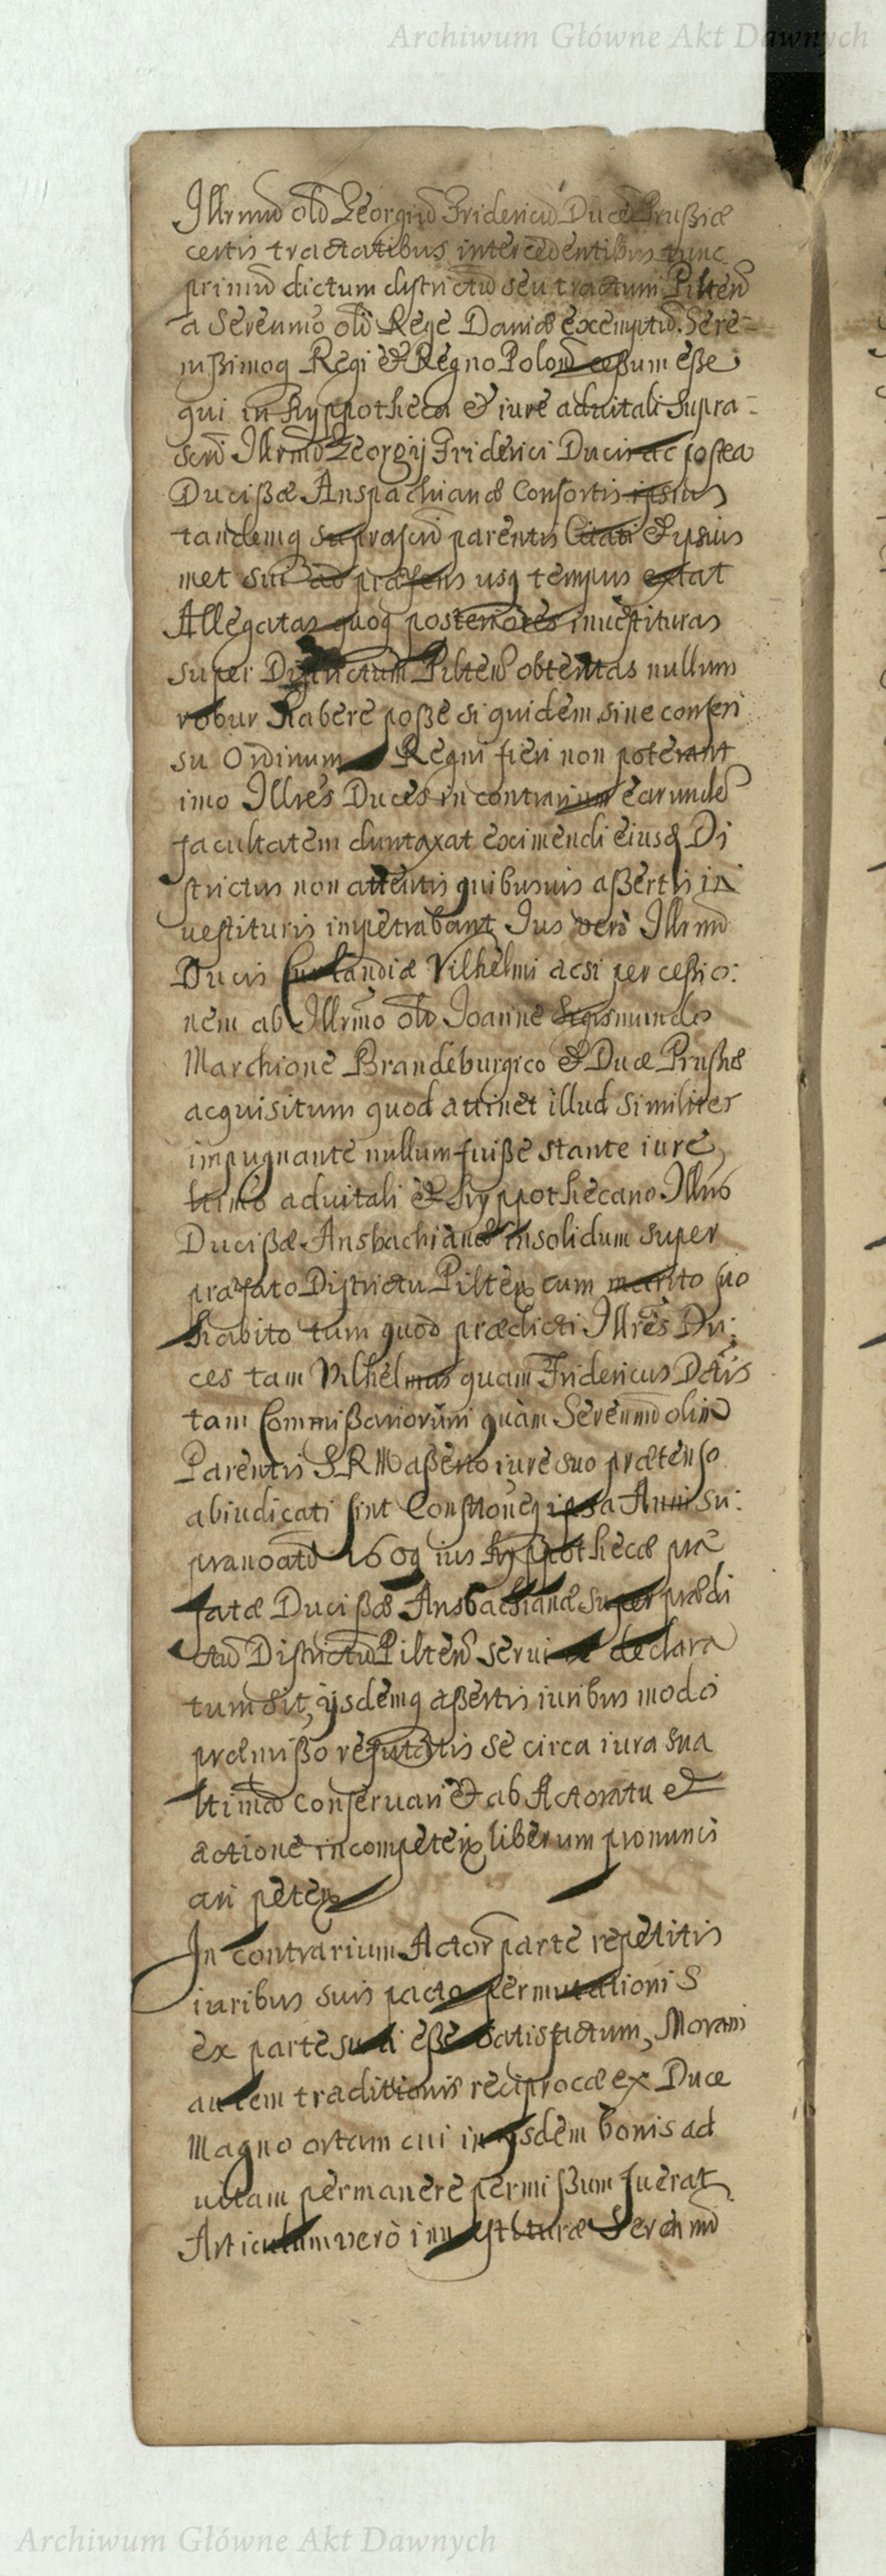 Archiwum Główne Akt Dawnych
Illrmu old Georgiu Fridericu Duce Prußiæ
certis tractatibus intercedentibus tunc
primu dictum districtu seu tractum Pilten
a Serenmo old Rege Daniæ exemptu Sere-
nißimoq Regi et Regno Polon ceßum eße
qui in hyppotheca et iure aduitali supra-
scri Illrmi Georgij Friderici Ducis ac postea
Ducißæ Anspachianæ Consortis ipsius
tandemq suprascri parentis Citati et ipsius
met sui ad præsens usq tempus extat
Allegatas quoq posteriores inuestituras
super Districtum Pilten obtentas nullum
robur habere poße siquidem sine consen
su Ordinum Regni fieri non poterant
imo Illres Duces in contrarium earunde
facultatem duntaxat eximendi eiusd Di
strictus non attentis quibusuis aßertis in
uestituris impetrabant Ius verò Illrmi
Ducis Curlandiæ Vilhelmi acsi per ceßio:
nem ab Illrmo old Joanne Sigismundo
Marchione Brandeburgico et Duce Prußiæ
acquisitum quod attinet illud similiter
impugnante nullum fuiße stante iure
ltimo aduitali et hyppothecano Illris
Ducißæ Ansbachianæ insolidum super
præfato Districtu Pilten cum marito suo
habito tum quod prædicti Illres Du:
ces tam Vilhelmus quam Fridericus Dctis
tam Commißariorum quàm Serenmi olim
Parentis S R M aßerto iure suo prætenso
abiudicati sint Constoneq ipsa Anni su:
pranoati 1609 ius hyppothecæ præ
fatæ Ducißæ Ansbachianæ super prædi
ctu Districtu Pilten seruiæ declara
tum sit, ijsdemq aßertis iuribus modo
præmißo refutatis se circa iura sua
ltima conseruari et ab Actoratu et
actione incompeten liberum pronunci
ari peten
In contrarium Actor parte repetitis
iuribus suis pacto permutationis
ex parte sui eße satisfactum, Moram
autem traditionis reciprocæ ex Duce
Magno ortam cui in ijsdem bonis ad
uitam permanere permißum fuerat
Articulum verò inuestituræ Serenmi
Archiwum Główne Akt Dawnych